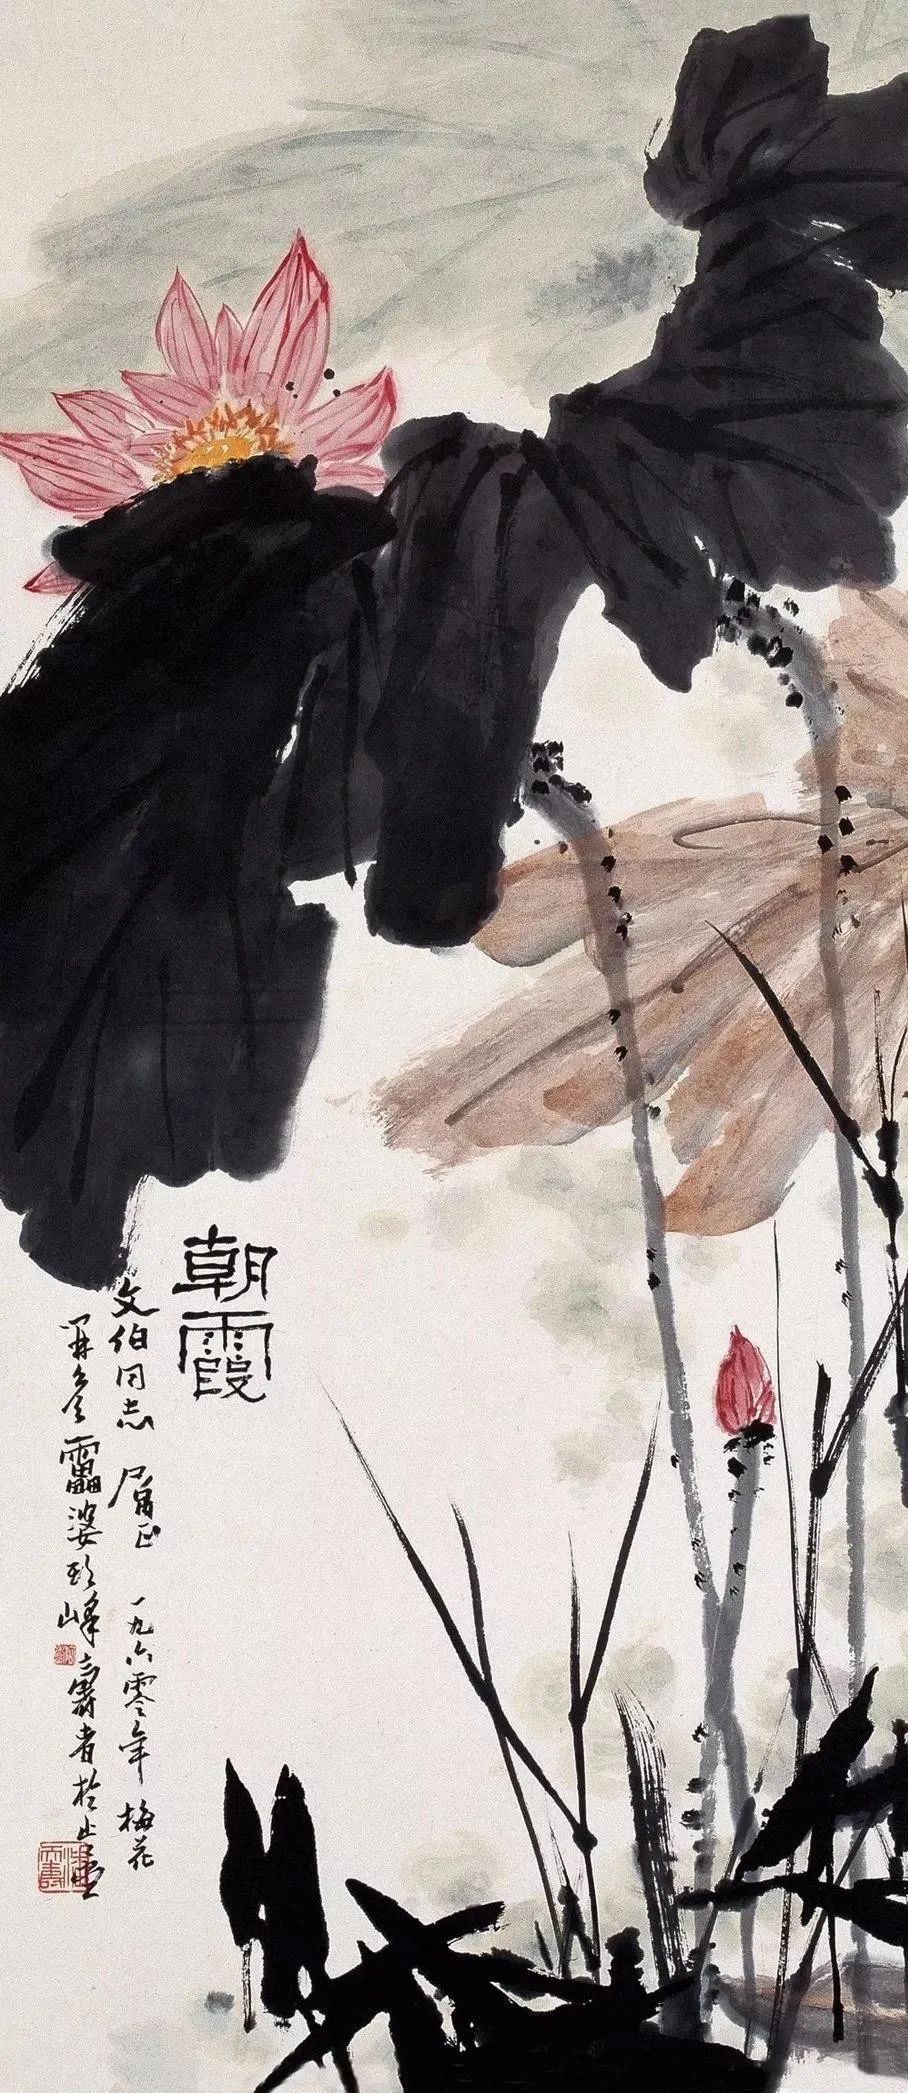 朝霞
文伯同志 屬正 一九六零年梅花
開靁婆頭峰壽者於止